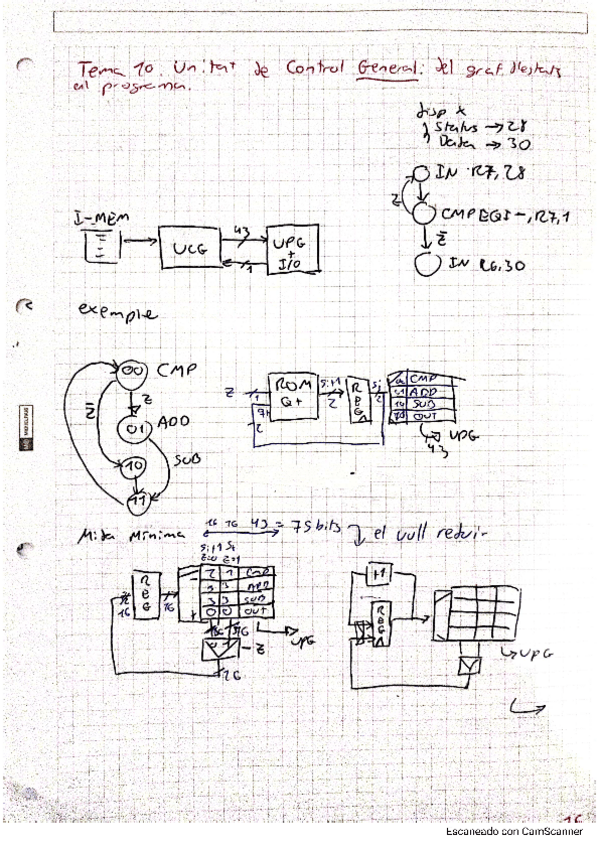 Tema 10. Unitat de Control General: del graf d'estats
al programa.
disp x
Status → 28
Data → 30
IN R7, 28
Z
CMPEQI -, R7, 1
Z
IN R6, 30
I-MEM
UCG
43
1
UPG
+
I/O
exemple
00
CMP
Z
Z
01
ADD
SUB
10
11
Z
1
2
ROM
Q+
Si+1
2
REG
Si
2
00 CMP
01 ADD
10 SUB
11 OUT
UPG
43
Mida Mínima
16 16 43 = 75 bits
el vull reduir
Si+1 Si
Z=0 Z=1
REG
16
16
2 1 CMP
3 3 ADD
3 3 SUB
0 0 OUT
16 16
0 1
Z
UPG
16
+1
REG
UPG
Escaneado con CamScanner